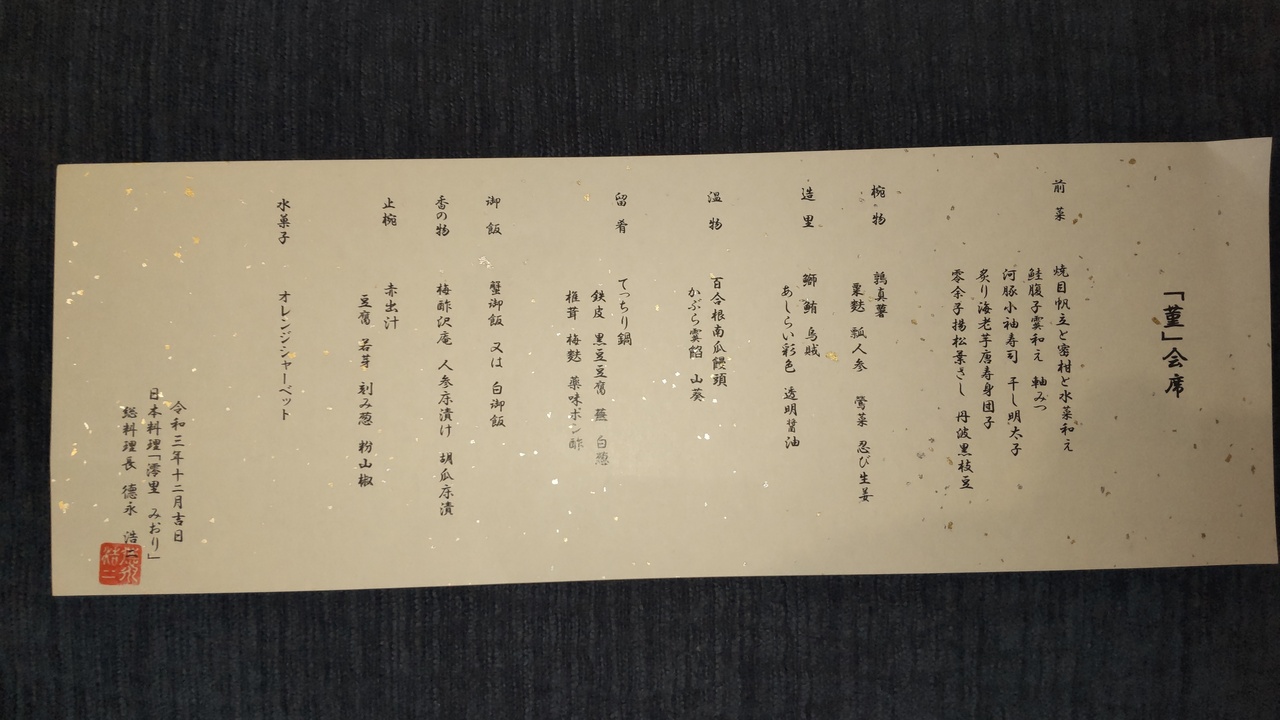 「菫」会席
前菜 焼目帆立と蜜柑と水菜和え
鮭腹子霙和え 軸みつ
河豚小袖寿司 干し明太子
炙り海老芋唐寿身団子
零余子揚松葉さし 丹波黒枝豆
椀物 鶉真薯
粟麩 瓢人参 鶯菜 忍び生姜
造里 鰤 鮪 烏賊
あしらい彩色 透明醤油
温物 百合根南瓜饅頭
かぶら霙餡 山葵
留肴 てっちり鍋
鉄皮 黒豆豆腐 蕪 白葱
椎茸 梅麩 薬味ポン酢
御飯 蟹御飯 又は 白御飯
香の物 梅酢沢庵 人参床漬け 胡瓜床漬
止椀 赤出汁
豆腐 若芽 刻み葱 粉山椒
水菓子 オレンジシャーベット
令和三年十二月吉日
日本料理「澪里 みおり」
総料理長 德永 浩二